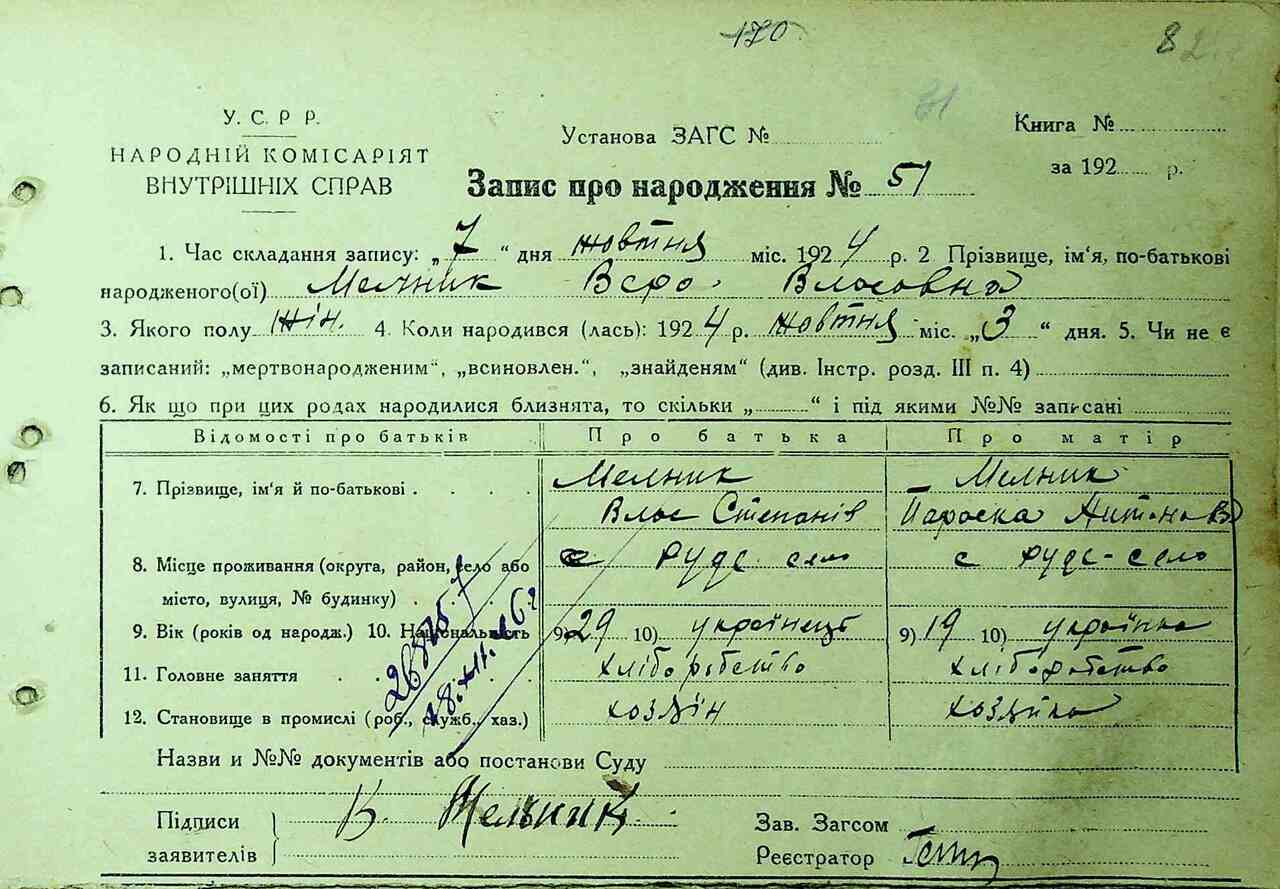 170
82
31
У. С. Р Р.
НАРОДНІЙ КОМІСАРІЯТ
ВНУТРІШНІХ СПРАВ
Установа ЗАГС №
Книга №
за 192 р.
Запис про народження № 51
1. Час складання запису: „7“ дня жовтня міс. 1924 р. 2 Прізвище, ім‘я, по-батькові
народженого(ої) Мельник Вера Власовна
3. Якого полу жін. 4. Коли народився (лась): 1924 р. жовтня міс. „3“ дня. 5. Чи не є
записаний: „мертвонародженим“, „всиновлен.“, „знайденям“ (див. Інстр. розд. III п. 4)
6. Як що при цих родах народилися близнята, то скільки „ “ і під якими №№ записані
Відомості про батьків Про батька Про матір
7. Прізвище, ім‘я й по-батькові . . . . Мелник Мелник
Влас Степанів Параска Антонова
8. Місце проживання (округа, район, село або с Руде село с Руде-село
місто, вулиця, № будинку) . . . . .
9. Вік (років од народж.) 10. Національність 9) 29 10) українець 9) 19 10) українка
11. Головне заняття . . . . . хліборобство хліборобство
12. Становище в промислі (роб., служб., хаз.) хозяїн хозяйка
Назви и №№ документів або постанови Суду
Підписи
заявителів
В. Мельник
Зав. Загсом
Реєстратор